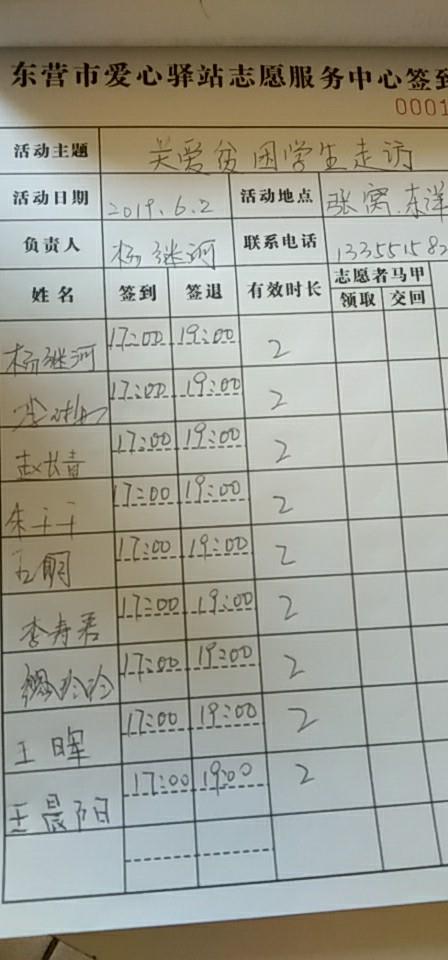 东营市爱心驿站志愿服务中心签到
0001
活动主题 关爱贫困学生走访
活动日期 2019.6.2 活动地点 张窝.东洋
负责人 杨继河 联系电话 133551582
姓名 签到 签退 有效时长 志愿者马甲
领取 交回
杨继河 17:00 19:00 2
17:00 19:00 2
赵长青 17:00 19:00 2
朱干干 17:00 19:00 2
王朋 17:00 19:00 2
李寿君 17:00 19:00 2
玲玲 17:00 19:00 2
王晖 17:00 19:00 2
王晨阳 17:00 19:00 2